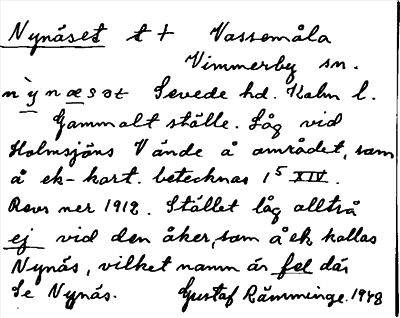 Nynäset t + Vassemåla
Vimmerby sn.
nỳnæsət Sevede hd. Kalm l.
Gammalt ställe. Låg vid
Holmsjöns V ände å området, som
å ek-kart. betecknas 1⁵ XIV.
Revs ner 1912. Stället låg alltså
ej vid den åker, som å ek kallas
Nynäs, vilket namn är fel där
Se Nynäs. Gustaf Rämminge. 1948